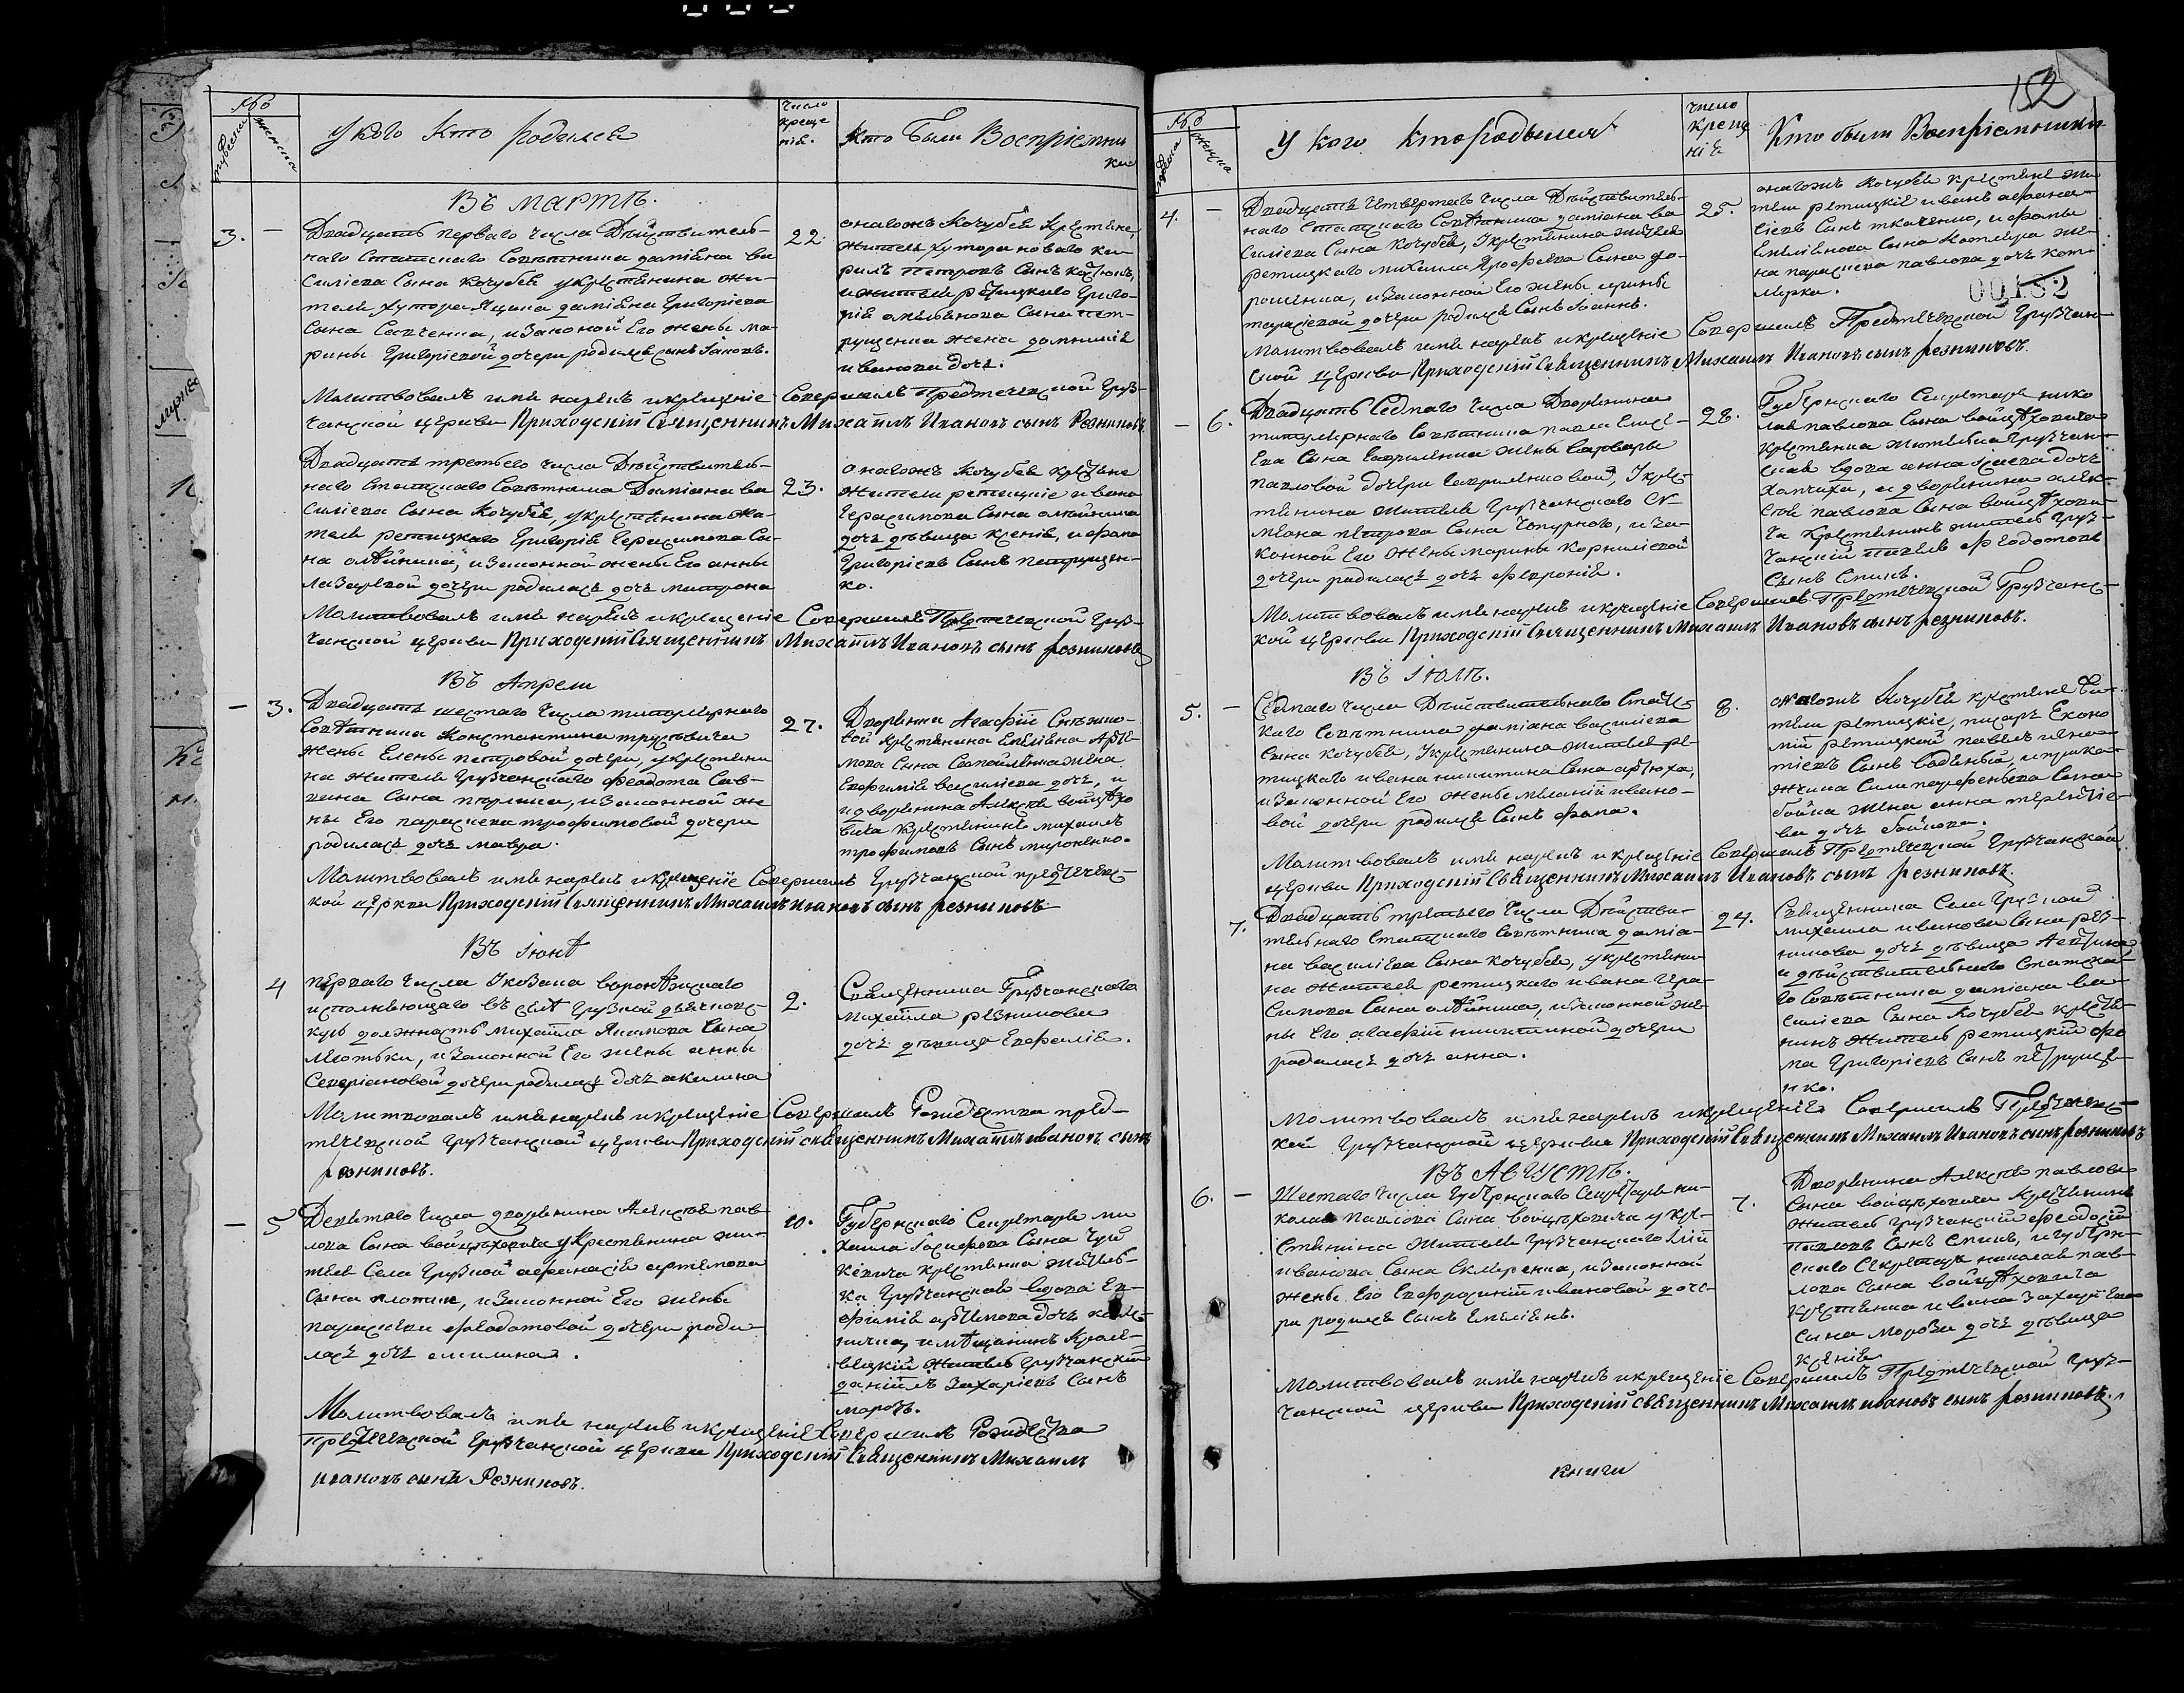 №
мужеска
женска
У кого кто родился
Число
креще
нія.
Кто были Воспріемни
ки
Въ мартѣ.
3. —
Двадцать перваго числа Дѣйствитель-
наго Статскаго Совѣтника даміана ва
силіева сына кочубея укрестянина жи-
теля хутора даміана Григоріева
сына Савченка, изаконой его жены ма-
рины Григоріевой дочери родился сынъ
22.
онагожъ Кочубея Крестяне,
житель хутора новаго ки-
рилъ петровъ сынъ
ижителя рѣтицкаго Григо-
рія Омелянова сына пет-
рущенка жена
иванова дочь.
Молитвовалъ имя нарекъ икрещеніе Совершилъ Предтеческой Груз-
чанской церкви Приходскій Священникъ Михаилъ Ивановъ сынъ Резниковъ.
Двадцать третьего числа Дѣйствитель-
наго Статскаго Совѣтника Даміана ва
силіева сына Кочубея, укрестянина жи-
теля ретицкаго Григорія Герасимова сы-
на олѣйника, изаконной жены его анны
лазаревой дочери родилась дочь матрона
23.
онагожъ Кочубея крестяне
жители ретицкіе ивана
Герасимова сына олѣйника
дочь дѣвица ксенія, ифома
Григоріевъ сынъ петрущен-
ко.
Молитвовалъ имя нарекъ икрещеніе Совершилъ Предтеческой Груз-
чанской церкви Приходскій Священникъ Михаилъ Ивановъ сынъ резниковъ
Въ Апрели
— 3.
Двадцать шестаго числа титулярнаго
Совѣтника Константина
жены Елены петровой дочери, укрестяни
на жителя Грузчанскаго феодота Сав-
вина сына изаконной же
ны его параскевы трофимовой дочери
родилась дочь мавра.
27.
Дворянки Агафіи
вой крестянина Емеліяна Арте-
мова сына жена
Евфимія василіева дочь, и
идворянина Алексѣя войцѣхо
вича крестянинъ михаилъ
трофимовъ сынъ мироненко.
Молитвовалъ имя нарекъ икрещеніе Совершилъ Грузчанской предтечес-
кой церкви Приходскій Священникъ Михаилъ Ивановъ сынъ резниковъ
Въ Іюнѣ
4
перваго числа Указана
исполняющаго въ селѣ Грузкой дьячковс-
кую должность михаила Акимова сына
Мотьки, изаконной его жены анны
Северіановой дочери родилась дочь акилина
2.
Священника Грузчанскаго
михаила резникова
дочь дѣвица Евфимія.
Молитвовалъ имя нарекъ икрещеніе Совершилъ Рождества пред-
теческой Грузчанской церкви Приходскій священникъ Михаилъ ивановъ сынъ
резниковъ.
— 5
Девятаго числа дворянина Алексѣя пав-
лова сына войцѣховича укрестянина жи-
теля Села Грузкой афанасія артемова
сына изаконной его жены
параскевы феодотовой дочери роди-
лась дочь акилина.
10.
Губернскаго Секретаря ми
хаила Іосифова сына Чуй
кевича крестянка житель-
ка Грузчанская вдова Ев-
фимія артемова дочь
имѣщанинъ Кроле-
вецкій житель Грузчанскій
даніилъ Захаріевъ сынъ
морозъ.
Молитвовалъ имя нарекъ икрещеніе Совершилъ Рождества
предтеческой Грузчанской церкви Приходскій Священникъ Михаилъ
ивановъ сынъ Резниковъ.
152
№
женска
У кого кто родился
число
креще
нія
Кто были Воспріемники
00152
4. —
Двадцать четвертаго числа Дѣйствитель-
наго Статскаго Совѣтника даміана ва
силіева сына Кочубея, укрестянина жителя
ретицкаго михаила Ярофѣева сына до-
рошенка, изаконной его жены ирины
тарасіевой дочери родился сынъ Іоаннъ.
25.
онагожъ Кочубея крестяне жи
тели ретицкіе иванъ афана-
сіевъ сынъ ткаченко, ифомы
Емеліянова сына же-
на параскева павлова дочь
Молитвовалъ имя нарекъ икрещеніе Совершилъ Предтеческой Грузчан-
ской церкви Приходскій Священникъ Михаилъ Ивановъ сынъ резниковъ.
— 6.
Двадцать Седмаго числа Дворянина
титулярнаго Совѣтника павла
сына Гавриленка жены варвары
павловой дочери Гавриленковой, Укрес
тянина жителя Грузчанскаго
петрова сына Чепурного, иза-
конной его жены марины Корниліевой
дочери родилась дочь февронія.
28.
Губернскаго Секретаря нико
лая павлова сына войцѣховича
крестянка жителька Грузчан-
ская вдова анна дочь
идворянина алек-
сѣя павлова сына войцѣхови-
ча крестянинъ житель груз-
чанскій феодотовъ
сынъ
Молитвовалъ имя нарекъ икрещеніе Совершилъ Предтеческой Грузчанс-
кой церкви Приходскій Священникъ Михаилъ Ивановъ сынъ резниковъ.
Въ Іюлѣ.
5. —
Седмаго числа Дѣйствительнаго Статс-
каго Совѣтника даміана василіева
сына кочубея, Укрестянина жителя ре-
тицкаго ивана никитина сына артюха,
изаконной его жены мѣланіи ивано-
вой дочери родился сынъ фома.
8.
онагожъ Кочубея крестяне жи-
тели ретицкіе, писарь Еконо
міи ретицкой павелъ
сынъ
сына
бойка жена анна терентіе-
ва дочь бойкова.
Молитвовалъ имя нарекъ икрещеніе Совершилъ Предтеческой Грузчанской
церкви Приходскій Священникъ Михаилъ Ивановъ сынъ резниковъ.
7.
Двадцать третьего числа Дѣйстви-
тельнаго Статскаго Совѣтника даміа-
на василіева сына кочубея, укрестяни-
на жителя ретицкаго ивана Гера-
симова сына олѣйника, изаконной же-
ны его агафіи никитиной дочери
родилась дочь анна.
24.
Священника Села Грузкой
михаила иванова сына рез-
никова дочь дѣвица
идѣйствительнаго Статска-
го Совѣтника даміана ва-
силіева сына Кочубея крестя-
нинъ житель ретицкій фо
ма Григоріевъ сынъ петруще-
нко.
Молитвовалъ имя нарекъ икрещеніе Совершилъ Предтеческ-
кой Грузчанской церкви Приходскій Священникъ Михаилъ Ивановъ сынъ резниковъ
Въ Августѣ.
6. —
Шестаго числа Губернскаго Секретаря ни-
колая павлова сына войцѣховича укре-
стянина жителя Грузчанскаго Іліи
иванова сына изаконной
жены его Евфросиніи ивановой доче-
ри родился сынъ Емеліянъ.
7.
Дворянина Алексѣя павлова
сына войцѣховича крестянинъ
житель Грузчанскій феодосій
павловъ сынъ игуберн-
скаго Секретаря николая пав-
лова сына войцѣховича
крестянка ивана
сына мороза дочь дѣвица
ксенія
Молитвовалъ имя нарекъ икрещеніе Совершилъ Предтеческой груз-
чанской церкви Приходскій священникъ Михаилъ ивановъ сынъ резниковъ.
книги